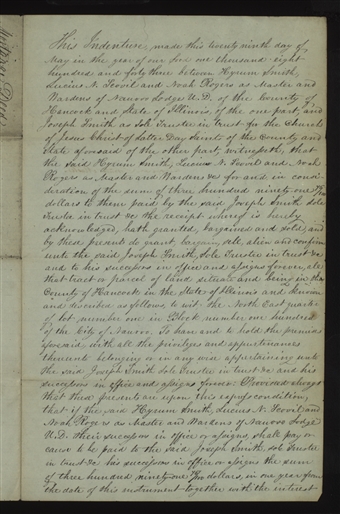 This Indenture, made this twenty ninth day of
May in the year of our Lord one thousand eight
hundred and forty three between Hyrum Smith,
Lucius N. Scovil and Noah Rogers as Master and
Wardens of Nauvoo Lodge U.D. of the County of
Hancock and State of Illinois, of the one part, and
Joseph Smith as Sole Trustee in Trust for the Church
of Jesus Christ of Latter Day Saints of the County and
State aforesaid of the other part, witnesseth, that
the said Hyrum Smith, Lucius N. Scovil and Noah
Rogers as Master and Wardens &c for and in consi-
deration of the sum of three hundred ninety one
dollars to them paid by the said Joseph Smith sole
Trustee in trust &c the receipt whereof is hereby
acknowledged, hath granted, bargained and sold, and
by these presents do grant, bargain, sell, alien and confirm
unto the said Joseph Smith, Sole Trustee in trust &c
and to his successors in office and assigns forever, all
that tract or parcel of land situate and being in the
County of Hancock in the State of Illinois and
and described as follows, to wit: the North East part
of lot number one in Block number one hundred
of the City of Nauvoo. To have and to hold the premises
aforesaid, with all the privileges and appurtenances
thereunto belonging or in any wise appertaining unto
the said Joseph Smith Sole Trustee in trust &c and his
successors in office and assigns forever. Provided always
that these presents are upon this express condition,
that if the said Hyrum Smith, Lucius N. Scovil and
Noah Rogers as Master and Wardens of Nauvoo Lodge
U.D. their successors in office or assigns, shall pay or
cause to be paid to the said Joseph Smith, sole Trustee
in trust &c his successors in office or assigns the sum
of three hundred ninety one dollars, in one year from
the date of this instrument together with the interest